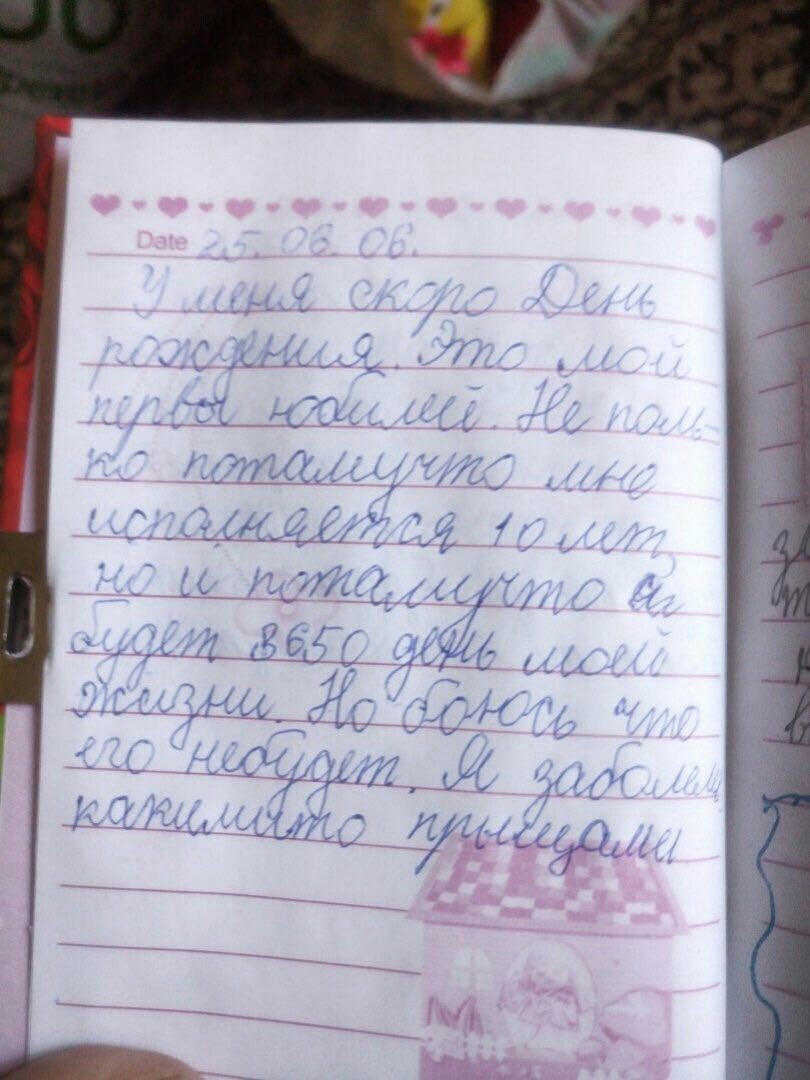 Date 25.06.06.
У меня скоро День
рождения. Это мой
первы юбилей. Не толь-
ко потамучто мне
исполняется 10 лет,
но и потамучто
будет 3650 день моей
жизни. Но боюсь что
его небудет. Я заболела
какимито прыщами